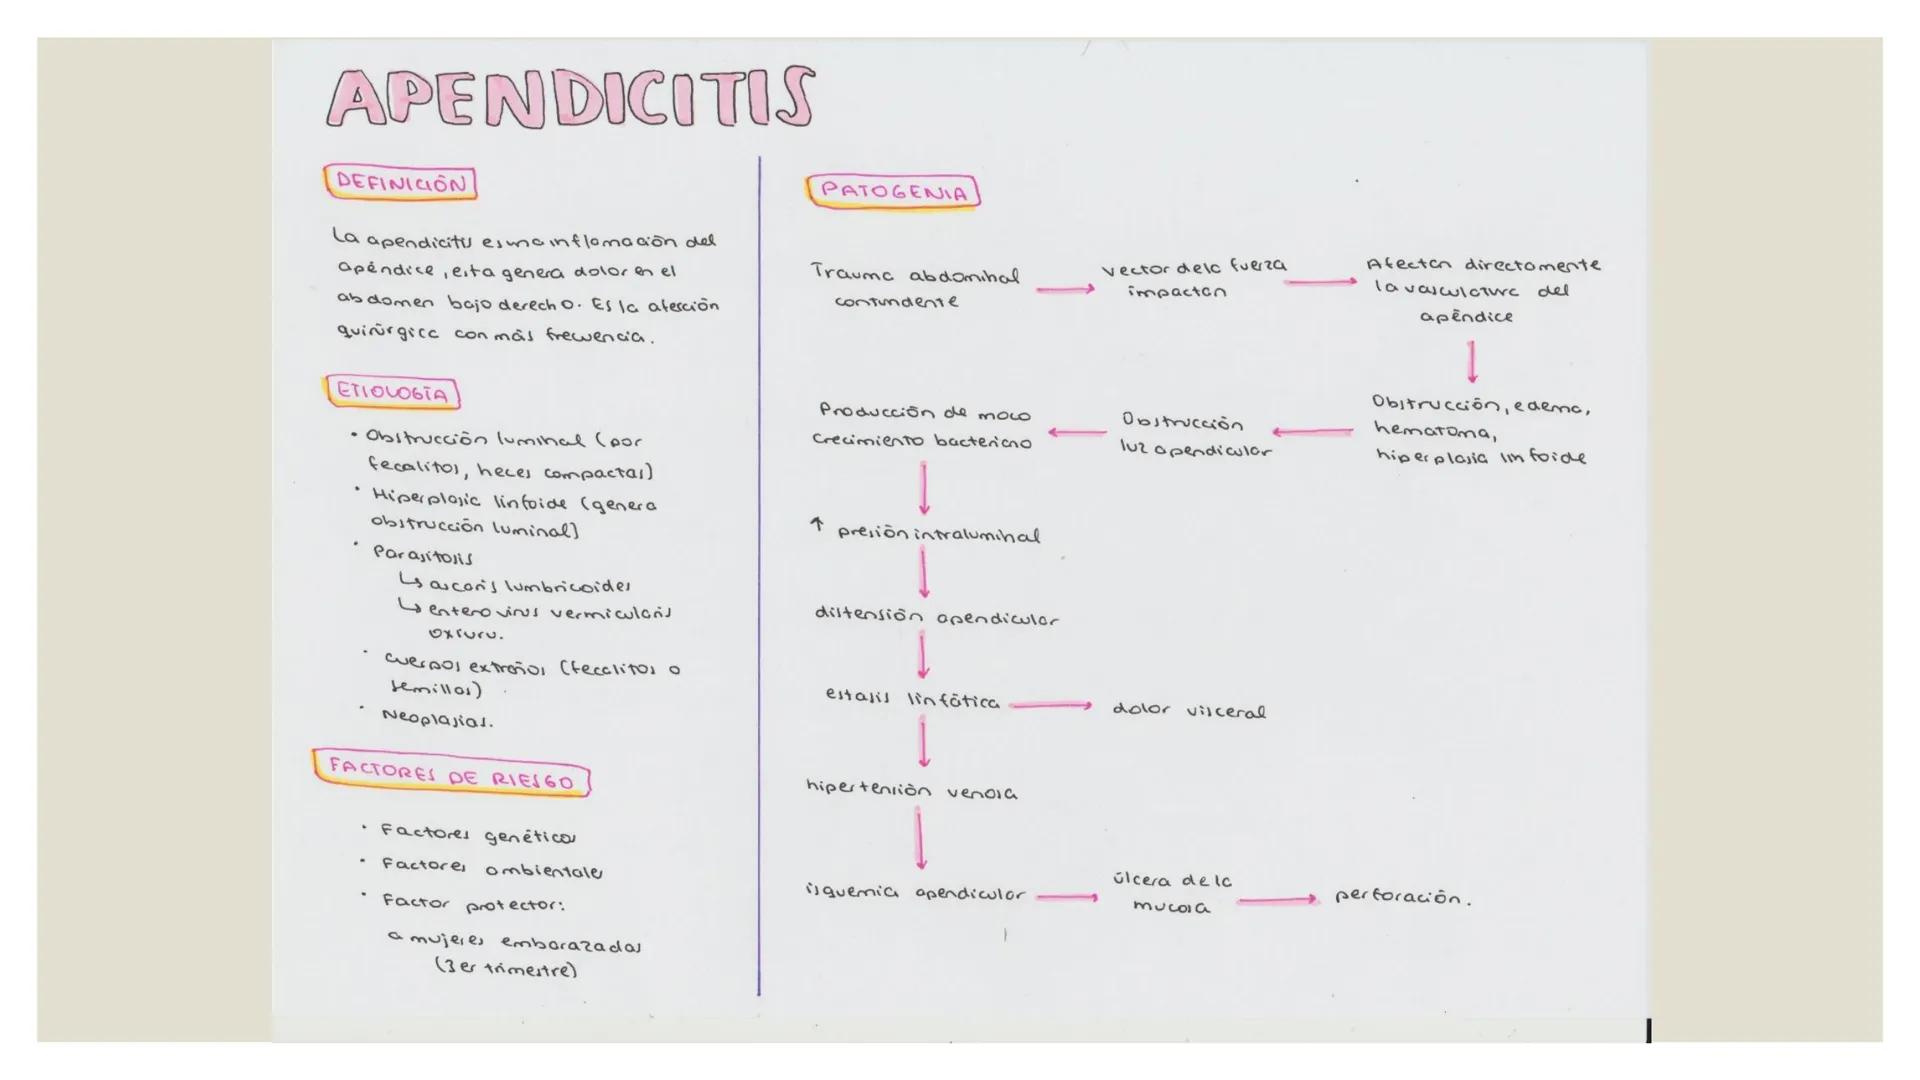 APENDICITIS
DEFINICIÓN
La apendicitis es una inflamación del
apéndice, esta genera dolor en el
abdomen bajo derecho. Es la afección
quirúrgica con más frecuencia.
ETIOLOGÍA
• Obstrucción luminal (por
fecalitos, heces compactas)
• Hiperplasia linfoide (genera
obstrucción luminal)
• Parasitosis
↳ ascaris lumbricoides
↳ entero virus vermicularis
oxiuru.
• cuerpos extraños (fecalitos o
semillas)
• Neoplasias.
FACTORES DE RIESGO
• Factores genéticos
• Factores ambientales
• Factor protector:
a mujeres embarazadas
(3er trimestre)
PATOGENIA
Trauma abdominal
contundente
vector de la fuerza
impactan
Afectan directamente
la vasculatura del
apéndice
Obstrucción, edema,
hematoma,
hiperplasia linfoide
Obstrucción
luz apendicular
Producción de moco
crecimiento bacteriano
↑ presión intraluminal
distensión apendicular
estasis linfática
dolor visceral
hipertensión venosa
isquemia apendicular
úlcera de la
mucosa
perforación.